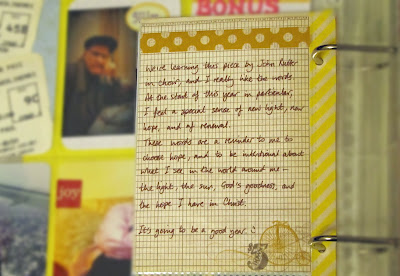 BONUS
45B
9C
joy
We're learning this piece by John Rutter
in choir, and I really like the words.
At the start of this year in particular,
I feel a special sense of new light, new
hope, and of renewal.
These words are a reminder to me to
choose hope, and to be intentional about
what I see in the world around me –
the light, the sun, God's goodness, and
the hope I have in Christ.
It's going to be a good year :)